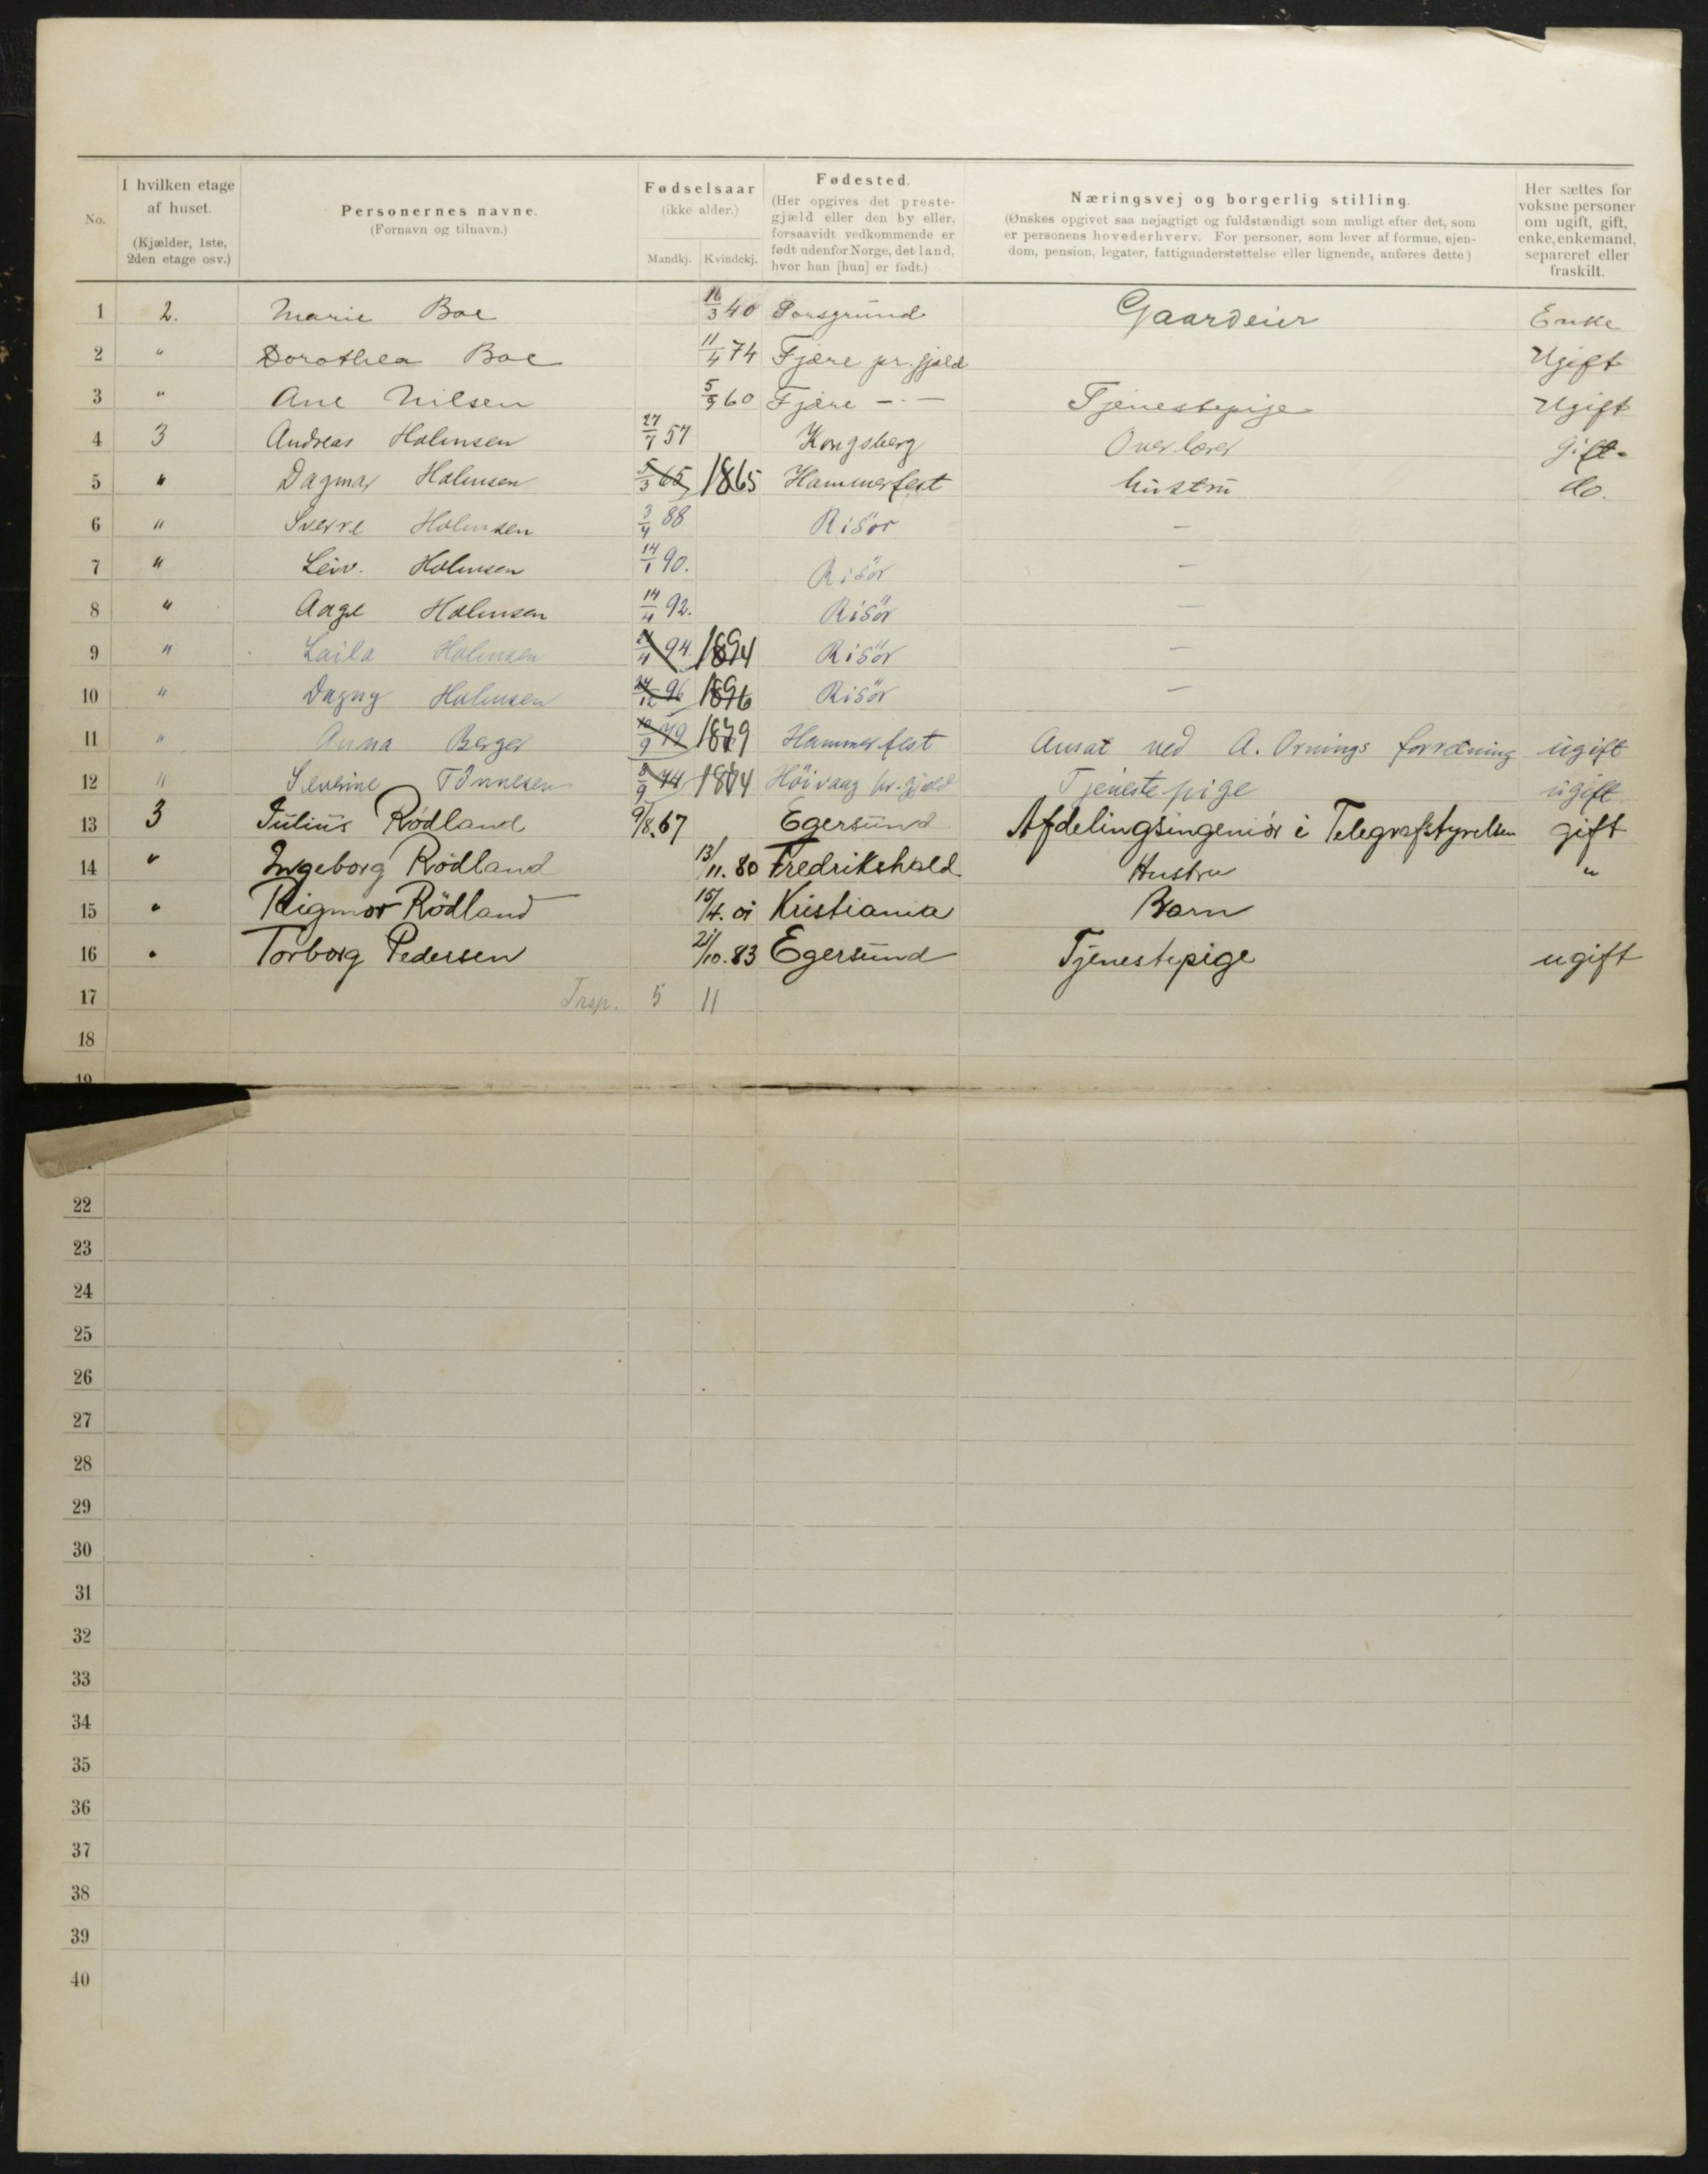 No. | I hvilken etage af huset. (Kjælder, 1ste, 2den etage osv.) | Personernes navne. (Fornavn og tilnavn.) | Fødselsaar (ikke alder.) Mandkj. | Kvindekj. | Fødested. (Her opgives det prestegjæld eller den by eller, forsaavidt vedkommende er født udenfor Norge, det land, hvor han [hun] er født.) | Næringsvej og borgerlig stilling. (Ønskes opgivet saa nøjagtigt og fuldstændigt som muligt efter det, som er personens hovederhverv. For personer, som lever af formue, ejendom, pension, legater, fattigunderstøttelse eller lignende, anføres dette) | Her sættes for voksne personer om ugift, gift, enke, enkemand, separeret eller fraskilt.
1 2. Marie Boe 16/3 40 Porsgrund Gaardeier Enke
2 " Dorothea Boe 11/4 74 Fjære pr. gjæld Ugift
3 " Ane Nilsen 5/9 60 Fjære - · - Tjenestepige Ugift
4 3 Andreas Holmsen 27/7 57 Kongsberg Overlærer Gift.
5 " Dagmar Holmsen 5/3 65 1865 Hammerfest hustru do.
6 " Sverre Holmsen 3/4 88 Risör —
7 " Leiv. Holmsen 14/1 90. Risör —
8 " Aage Holmsen 14/4 92. Risör —
9 " Laila Holmsen 4 94. 1894 Risör —
10 " Dagny Holmsen 24/12 96 1896 Risör —
11 " Anna Berger 10/9 79 1879 Hammerfest Ansat ved A. Ornings forretning ugift
12 " Severine Tönnesen 8/9 74 1874 Höivaag pr. gjæld Tjenestepige ugift
13 3 Julius Rödland 9/8. 67 Egersund Afdelingsingeniör i Telegrafstyrelsen gift
14 " Ingeborg Rödland 13/11. 80 Fredrikshald Hustru "
15 " Rigmor Rödland 15/4. 01 Kristiania Barn
16 " Torborg Pedersen 21/10. 83 Egersund Tjenestepige ugift
17 Trsp. 5 11
18
19
22
23
24
25
26
27
28
29
30
31
32
33
34
35
36
37
38
39
40